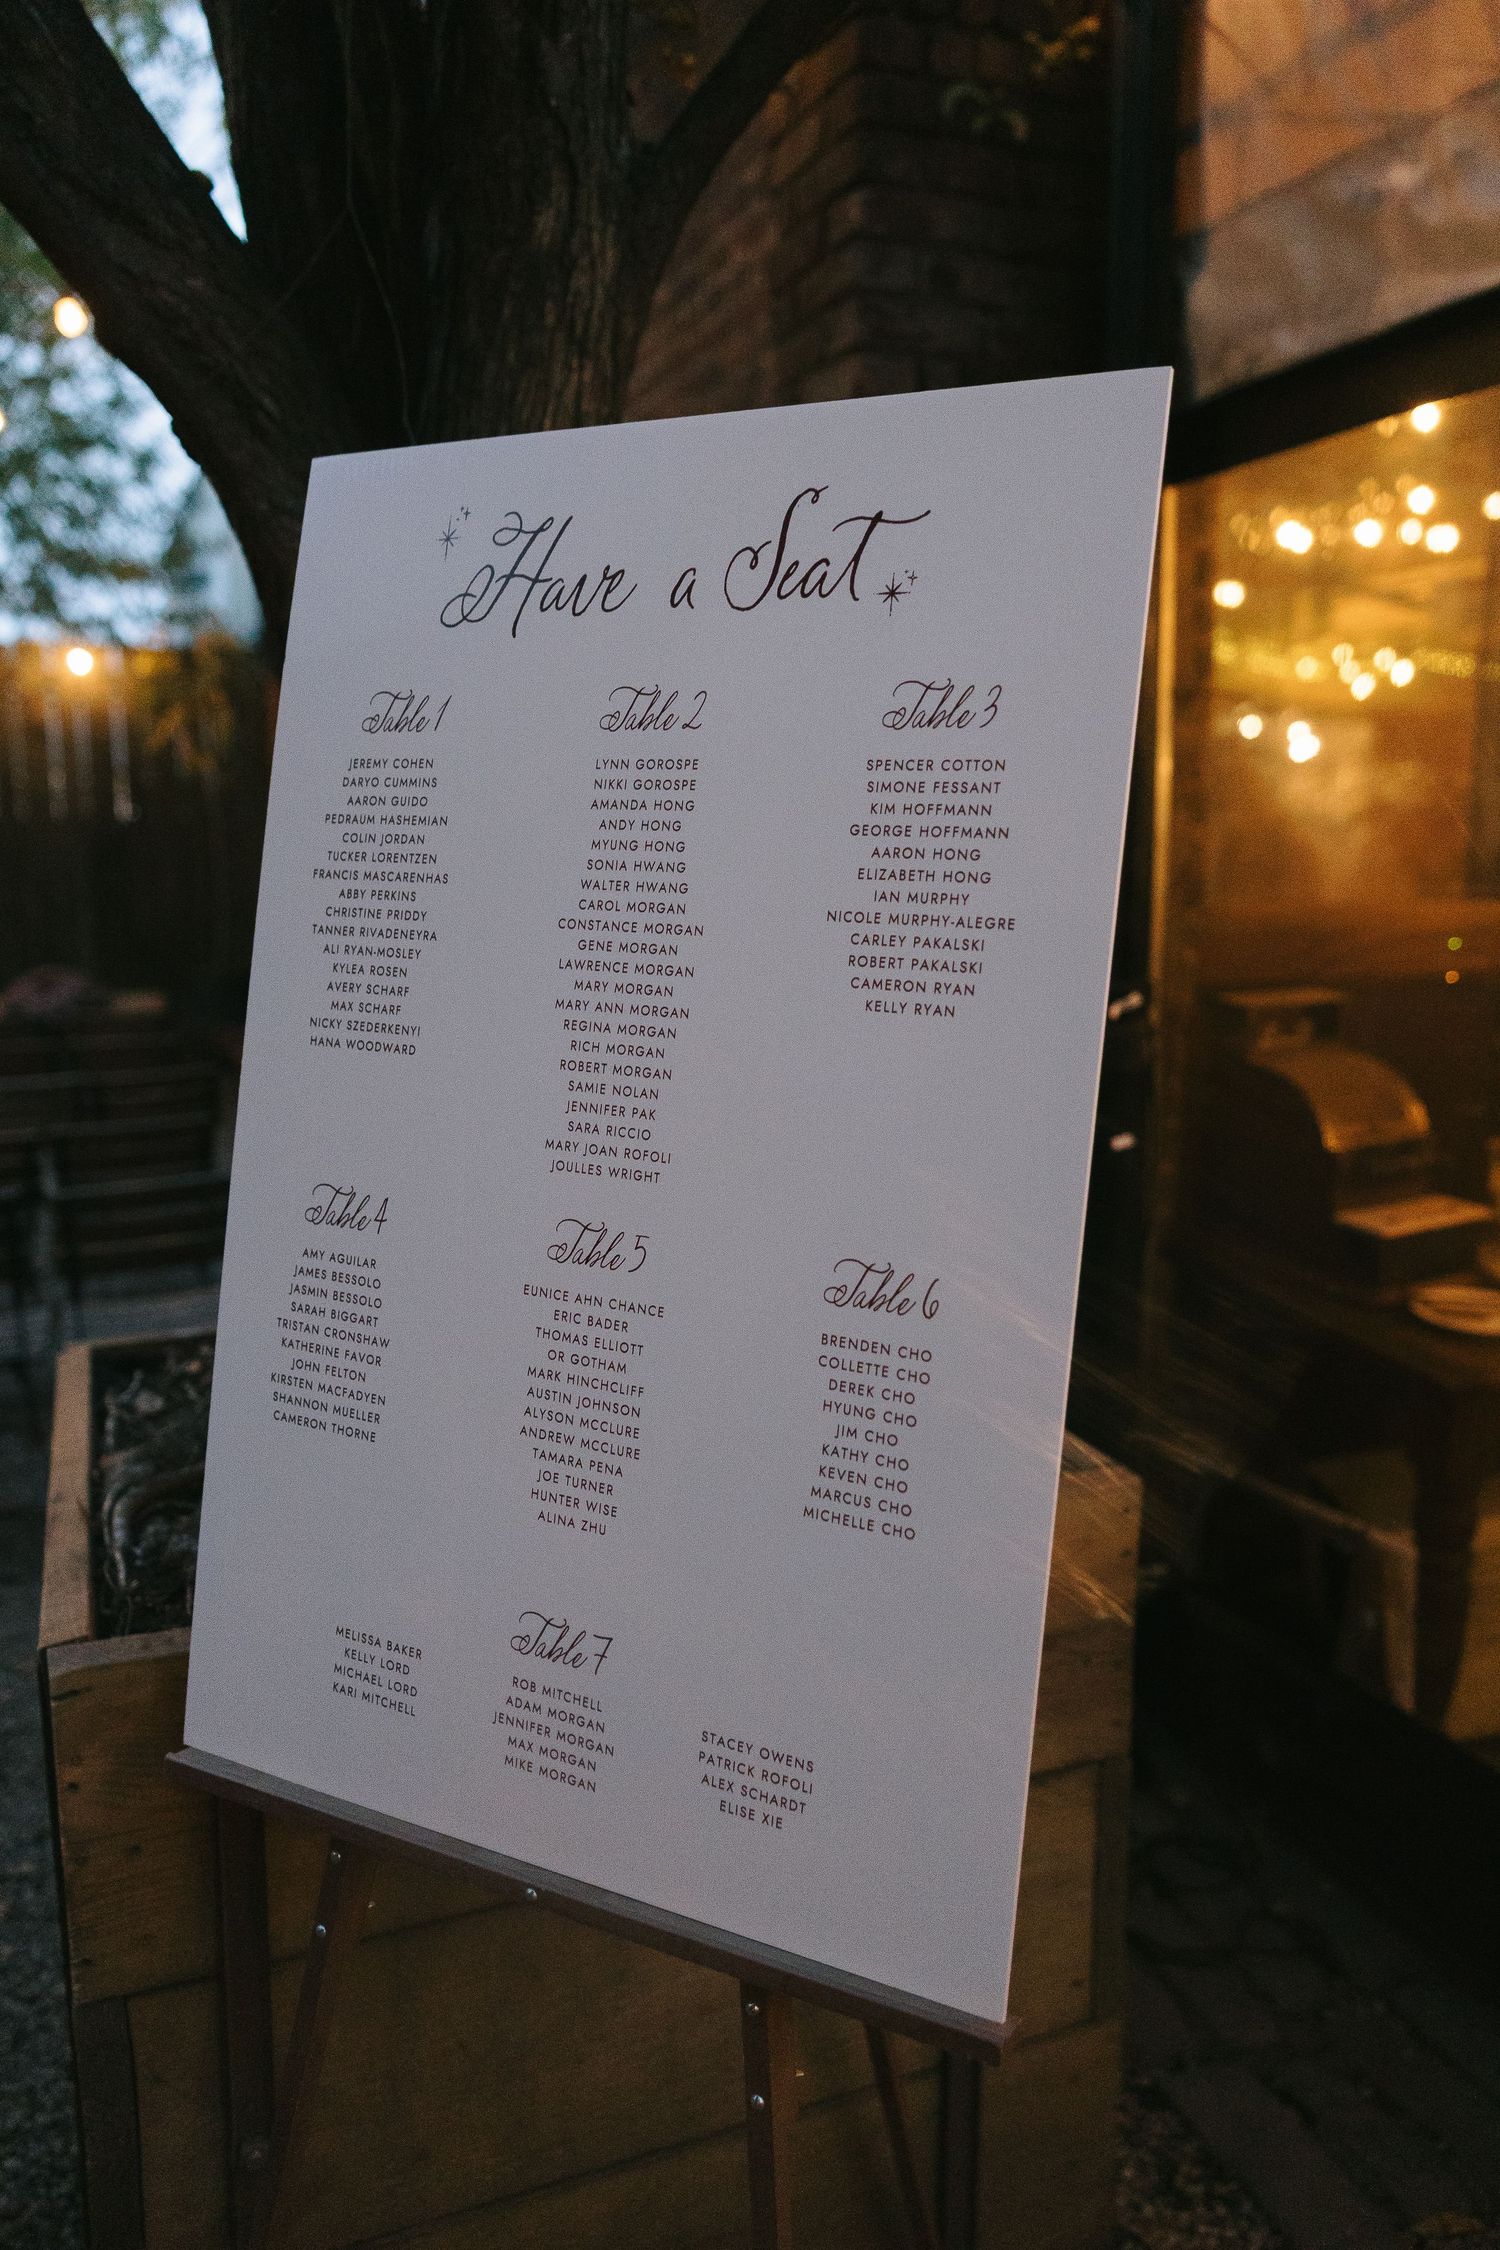 Have a Seat
Table 1
JEREMY COHEN
DARYO CUMMINS
AARON GUIDO
PEDRAUM HASHEMIAN
COLIN JORDAN
TUCKER LORENTZEN
FRANCIS MASCARENHAS
ABBY PERKINS
CHRISTINE PRIDDY
TANNER RIVADENEYRA
ALI RYAN-MOSLEY
KYLEA ROSEN
AVERY SCHARF
MAX SCHARF
NICKY SZEDERKENYI
HANA WOODWARD
Table 2
LYNN GOROSPE
NIKKI GOROSPE
AMANDA HONG
ANDY HONG
MYUNG HONG
SONIA HWANG
WALTER HWANG
CAROL MORGAN
CONSTANCE MORGAN
GENE MORGAN
LAWRENCE MORGAN
MARY MORGAN
MARY ANN MORGAN
REGINA MORGAN
RICH MORGAN
ROBERT MORGAN
SAMIE NOLAN
JENNIFER PAK
SARA RICCIO
MARY JOAN ROFOLI
JOULLES WRIGHT
Table 3
SPENCER COTTON
SIMONE FESSANT
KIM HOFFMANN
GEORGE HOFFMANN
AARON HONG
ELIZABETH HONG
IAN MURPHY
NICOLE MURPHY-ALEGRE
CARLEY PAKALSKI
ROBERT PAKALSKI
CAMERON RYAN
KELLY RYAN
Table 4
AMY AGUILAR
JAMES BESSOLO
JASMIN BESSOLO
SARAH BIGGART
TRISTAN CRONSHAW
KATHERINE FAVOR
JOHN FELTON
KIRSTEN MACFADYEN
SHANNON MUELLER
CAMERON THORNE
Table 5
EUNICE AHN CHANCE
ERIC BADER
THOMAS ELLIOTT
OR GOTHAM
MARK HINCHCLIFF
AUSTIN JOHNSON
ALYSON MCCLURE
ANDREW MCCLURE
TAMARA PENA
JOE TURNER
HUNTER WISE
ALINA ZHU
Table 6
BRENDEN CHO
COLLETTE CHO
DEREK CHO
HYUNG CHO
JIM CHO
KATHY CHO
KEVEN CHO
MARCUS CHO
MICHELLE CHO
Table 7
MELISSA BAKER
KELLY LORD
MICHAEL LORD
KARI MITCHELL
ROB MITCHELL
ADAM MORGAN
JENNIFER MORGAN
MAX MORGAN
MIKE MORGAN
STACEY OWENS
PATRICK ROFOLI
ALEX SCHARDT
ELISE XIE